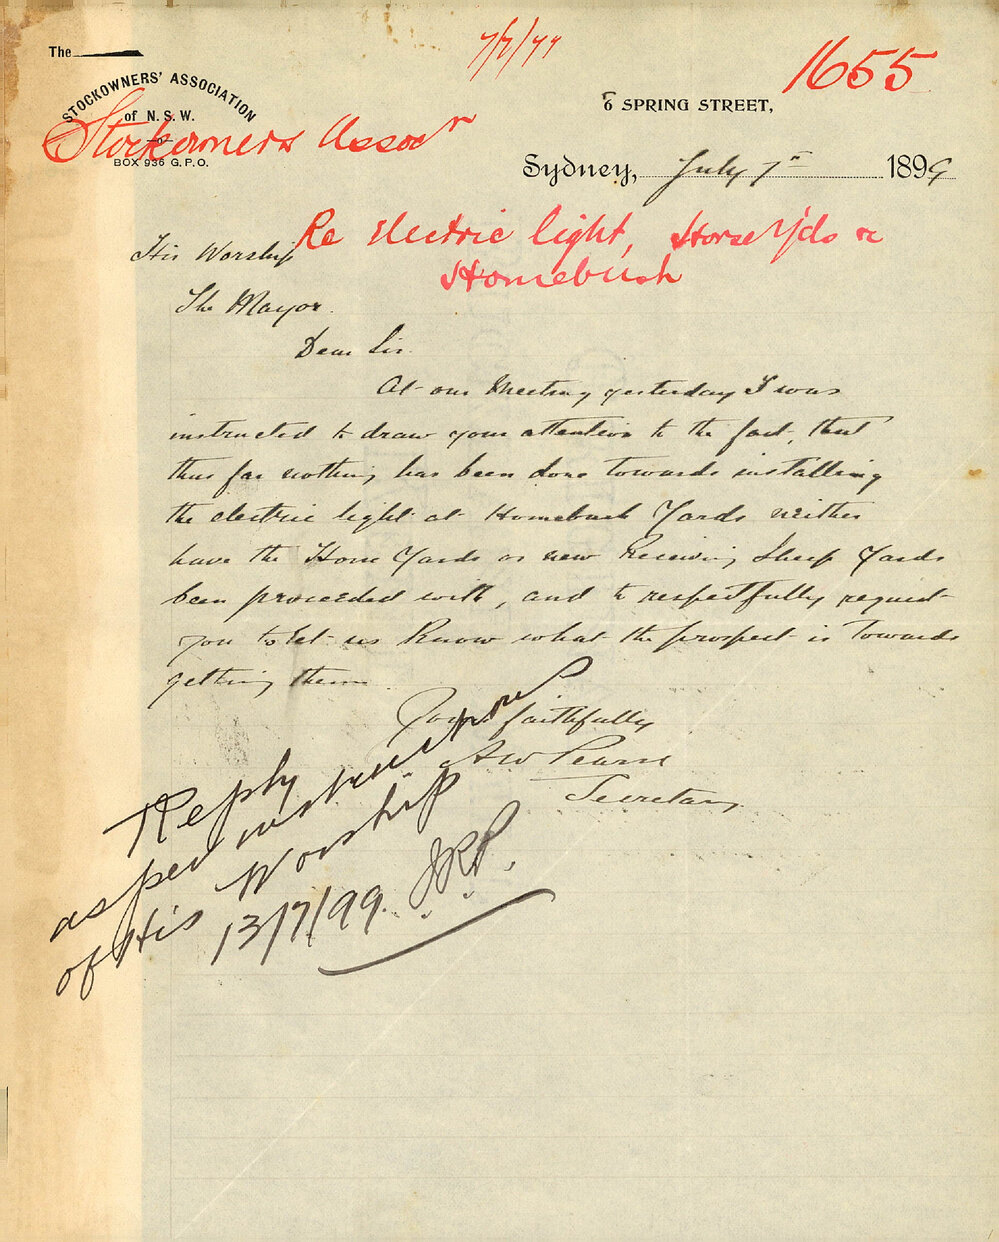 7/7/99
1655
The
STOCKOWNERS' ASSOCIATION
of N. S. W.
Stockowners Assocn
BOX 936 G.P.O.
6 SPRING STREET,
Sydney, July 7th 1899
Re Electric light, Horse Y'ds &c
Homebush
His Worship
The Mayor.
Dear Sir.
At our Meeting yesterday I was
instructed to draw your attention to the fact, that
thus far nothing has been done towards installing
the electric light at Homebush Yards neither
have the Horse Yards or new Receiving Sheep Yards
been proceeded with, and to respectfully request
you to let us know what the prospect is towards
getting them.
Yours faithfully
A W Pearse
Secretary
Reply
as per instructions
of His Worship
13/7/99.